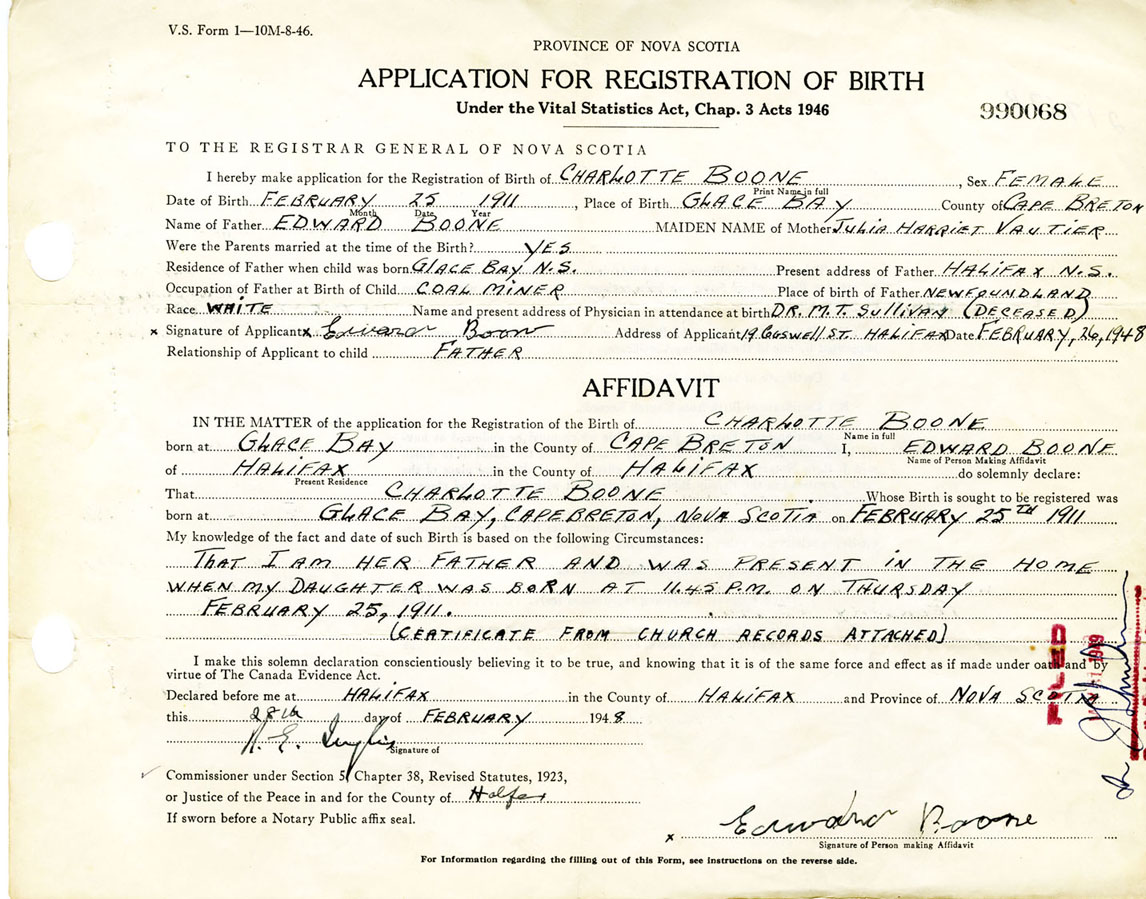 V.S. Form 1—10M-8-46.
PROVINCE OF NOVA SCOTIA
APPLICATION FOR REGISTRATION OF BIRTH
Under the Vital Statistics Act, Chap. 3 Acts 1946
990068
TO THE REGISTRAR GENERAL OF NOVA SCOTIA
I hereby make application for the Registration of Birth of CHARLOTTE BOONE, Sex FEMALE
Print Name in full
Date of Birth FEBRUARY 25 1911, Place of Birth GLACE BAY County of CAPE BRETON
Month Date Year
Name of Father EDWARD BOONE MAIDEN NAME of Mother JULIA HARRIET VAUTIER
Were the Parents married at the time of the Birth? YES
Residence of Father when child was born GLACE BAY N.S. Present address of Father HALIFAX N.S.
Occupation of Father at Birth of Child COAL MINER Place of birth of Father NEWFOUNDLAND
Race WHITE Name and present address of Physician in attendance at birth DR. M.T. SULLIVAN (DECEASED)
x Signature of Applicant x Edward Boone Address of Applicant ST. HALIFAX Date FEBRUARY, 26, 1948
Relationship of Applicant to child FATHER
AFFIDAVIT
IN THE MATTER of the application for the Registration of the Birth of CHARLOTTE BOONE
Name in full
born at GLACE BAY in the County of CAPE BRETON I, EDWARD BOONE
Name of Person Making Affidavit
of HALIFAX in the County of HALIFAX do solemnly declare:
Present Residence
That CHARLOTTE BOONE Whose Birth is sought to be registered was
born at GLACE BAY, CAPE BRETON, NOVA SCOTIA on FEBRUARY 25TH 1911
My knowledge of the fact and date of such Birth is based on the following Circumstances:
THAT I AM HER FATHER AND WAS PRESENT IN THE HOME
WHEN MY DAUGHTER WAS BORN AT 11.45 P.M. ON THURSDAY
FEBRUARY 25, 1911.
(CERTIFICATE FROM CHURCH RECORDS ATTACHED)
I make this solemn declaration conscientiously believing it to be true, and knowing that it is of the same force and effect as if made under oath and by
virtue of The Canada Evidence Act.
Declared before me at HALIFAX in the County of HALIFAX and Province of NOVA SCOTIA
this 28th day of FEBRUARY 1948
Signature of
Commissioner under Section 5, Chapter 38, Revised Statutes, 1923,
or Justice of the Peace in and for the County of Halfax
If sworn before a Notary Public affix seal.
x Edward Boone
Signature of Person making Affidavit
For Information regarding the filling out of this Form, see instructions on the reverse side.
FILED
1949